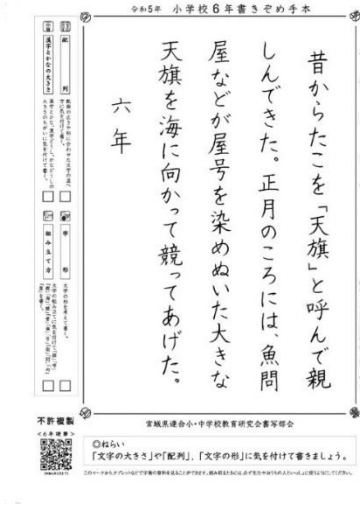 令和5年 小学校6年書きぞめ手本
昔からたこを「天旗」と呼んで親
しんできた。正月のころには、魚問
屋などが屋号を染めぬいた大きな
天旗を海に向かって競ってあげた。
六年
配列
漢字とかなの大きさ
字形
組み立て方
不許複製
<6年硬筆>
宮城県連合小・中学校教育研究会書写部会
◎ねらい
「文字の大きさ」や「配列」、「文字の形」に気を付けて書きましょう。